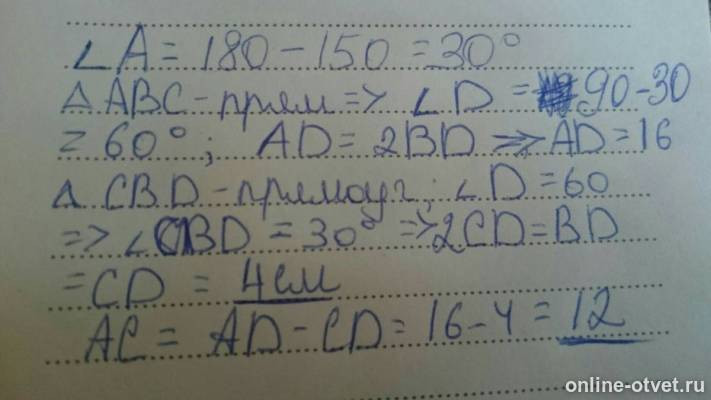 ∠A = 180 - 150 = 30°
Δ ABC - прям => ∠D = 90-30
= 60°; AD = 2BD => AD = 16
Δ CBD - прямоуг; ∠D = 60
=> ∠CBD = 30° => 2CD = BD
= CD = 4см
AC = AD - CD = 16 - 4 = 12
online-otvet.ru